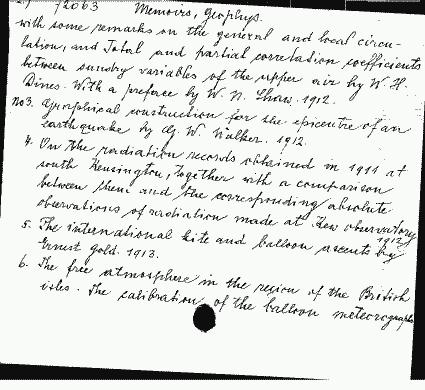 72063 Memoirs, Geophys.
with some remarks on the general and local circu-
lation, and Total and partial correlation coefficients
between sundry variables of the upper air by W. H.
Dines. With a preface by W. N. Shaw. 1912.
No 3. Graphical construction for the epicentre of an
earthquake by G. W. Walker. 1912.
4. On the radiation records obtained in 1911 at
south Kensington, together with a comparison
between them and the corresponding absolute
observations of radiation made at Kew observatory
1912.
5. The international kite and balloon ascents by
Ernest Gold. 1913.
6. The free atmosphere in the region of the British
isles. The calibration of the balloon meteorographs